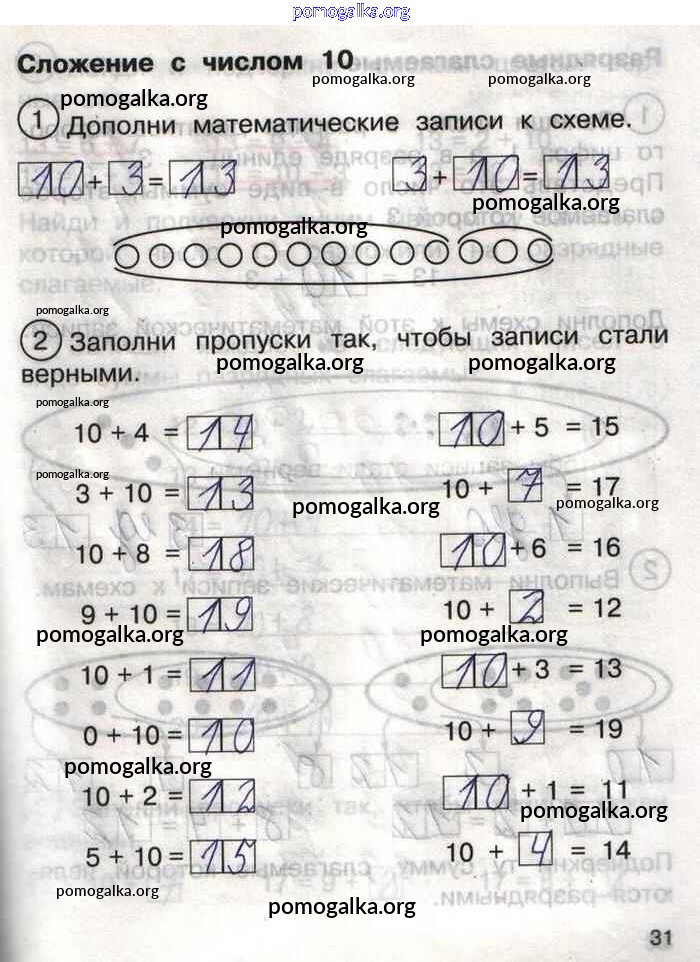 pomogalka.org
Сложение с числом 10
pomogalka.org pomogalka.org
pomogalka.org
1 Дополни математические записи к схеме.
10 + 3 = 13 3 + 10 = 13
pomogalka.org
pomogalka.org
pomogalka.org
2 Заполни пропуски так, чтобы записи стали
pomogalka.org pomogalka.org
верными.
pomogalka.org
10 + 4 = 14 10 + 5 = 15
pomogalka.org
3 + 10 = 13 10 + 7 = 17
pomogalka.org pomogalka.org
10 + 8 = 18 10 + 6 = 16
9 + 10 = 19 10 + 2 = 12
pomogalka.org pomogalka.org
10 + 1 = 11 10 + 3 = 13
0 + 10 = 10 10 + 9 = 19
pomogalka.org
10 + 2 = 12 10 + 1 = 11
pomogalka.org
5 + 10 = 15 10 + 4 = 14
pomogalka.org
pomogalka.org
31